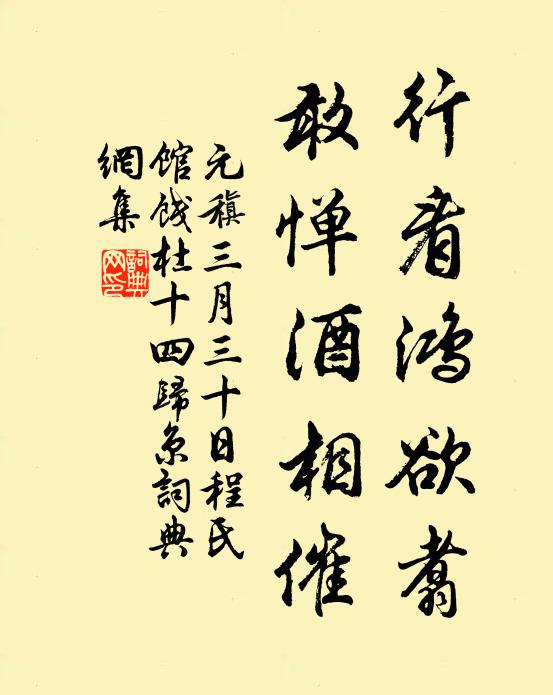 行看鸿欲翥
敢惮酒相催
元稹三月三十日程氏
館餞杜十四歸京詞典
網集
詞典網印